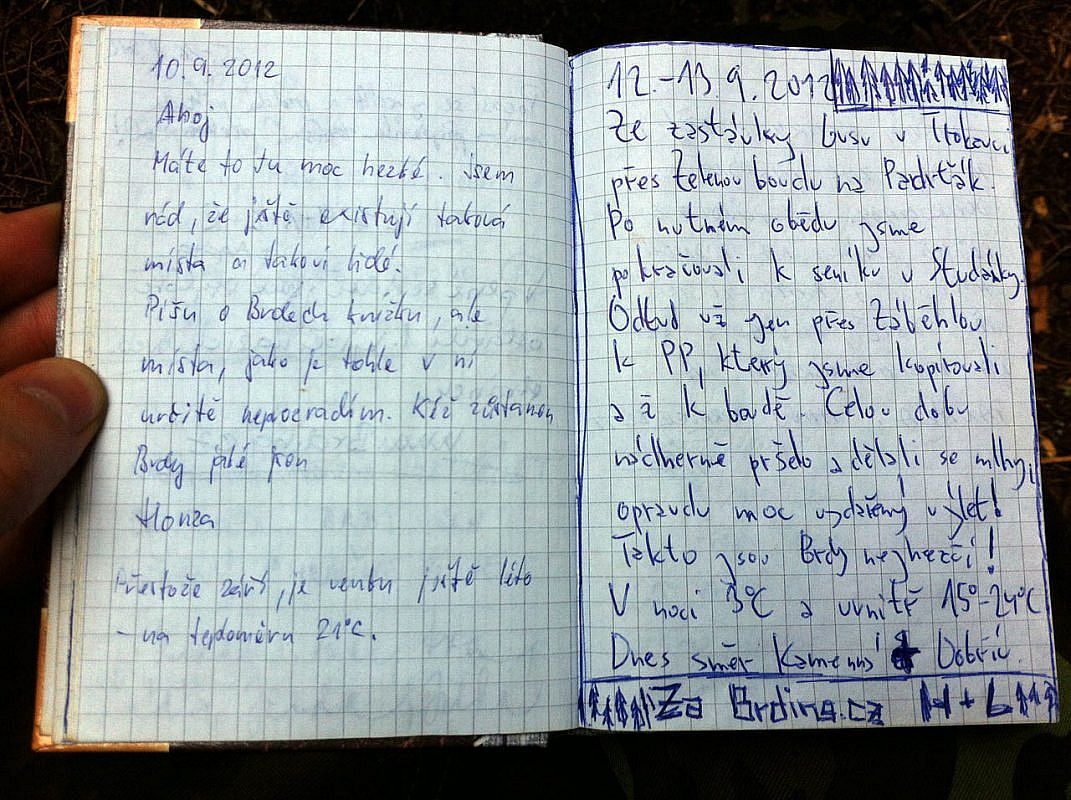 10.9.2012
Ahoj
Máte to tu moc hezké. Jsem
rád, že ještě existují taková
místa a takoví lidé.
Píšu o Brdech knížku, ale
místa, jako je tohle v ní
určitě neprozradím. Kéž zůstanou
Brdy jaké jsou
Honza
Přestože září, je venku ještě léto
- na teploměru 21°C.
12.-13.9.2012
Ze zastávky busu v Trokavci
přes Zelenou boudu na Padrťák.
Po nutném obědu jsme
pokračovali k seníku u Studánky.
Odtud už jen přes Záběhlou
k PP, který jsme kopírovali
a ž k boudě. Celou dobu
nádherně pršelo a dělali se mlhy,
opravdu moc vydařený výlet!
Takto jsou Brdy nejhezčí!
V noci 3°C a uvnitř 15°-24°C
Dnes směr Kamenná Dobříč.
Za Brdina.cz H+L